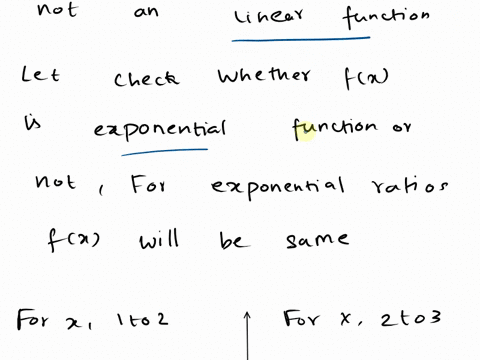 not an linear function
Let check whether f(x)
is exponential function or
not, For exponential ratios
f(x) will be same
For x, 1 to 2 For x, 2 to 3